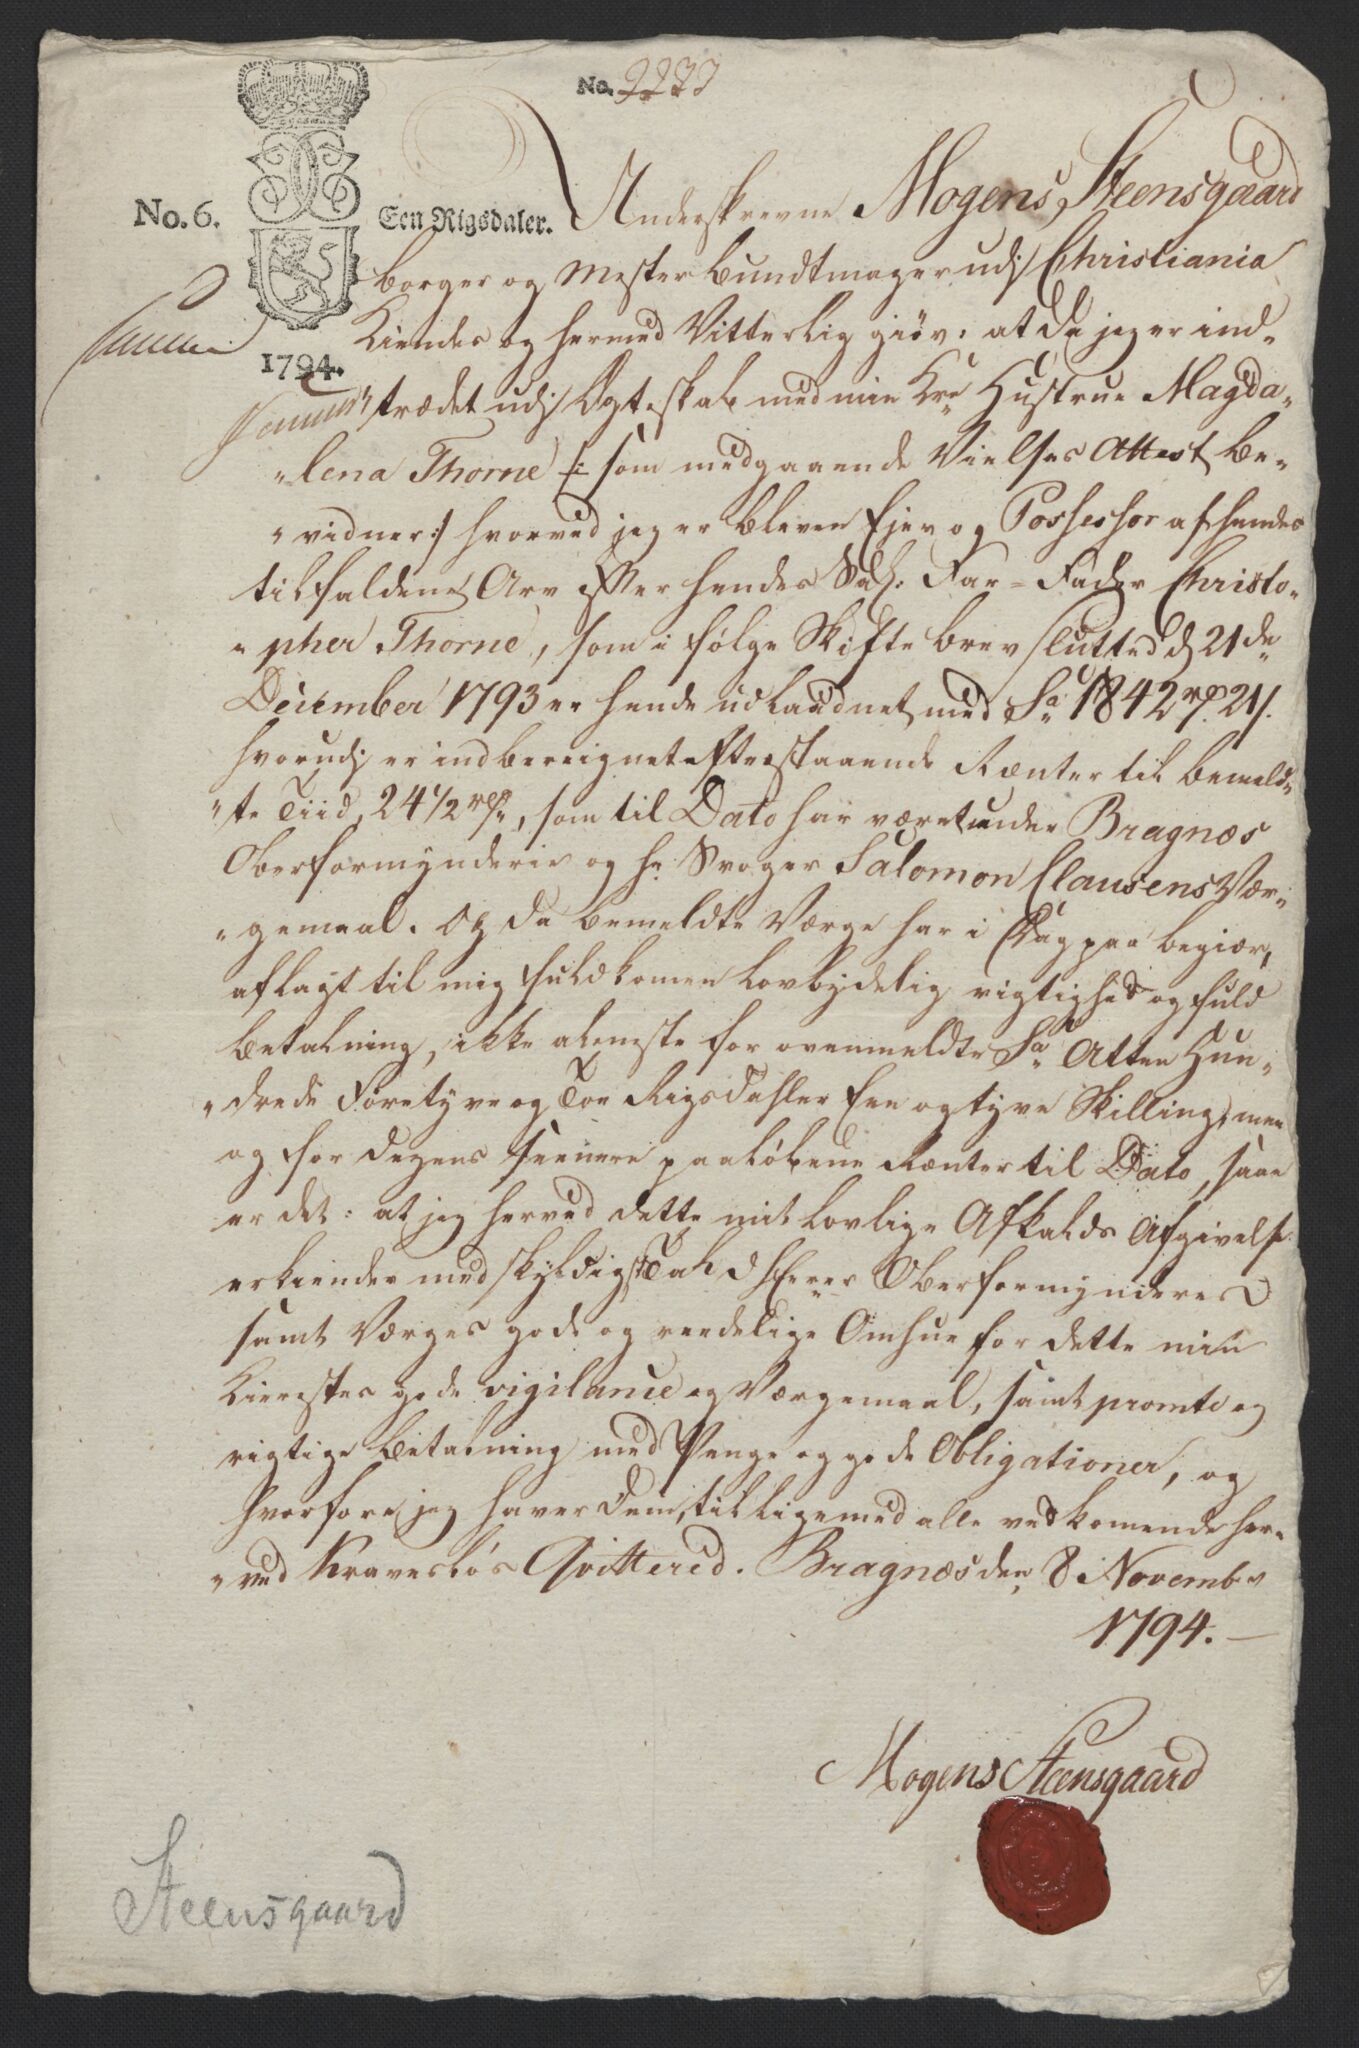 No. 2233
No. 6.
Een Rigsdaler.
1794.
Underskrevne Mogens Steensgaard
borger og Mester Bundtmager udj Christiania
Kiendes og hermed Vitterlig giör: at da jeg er ind-
trædet udj Ægteskab med min Kre Hustrue Magda-
lena Thorne /: som medgaaende Vielses Attest be-
vidner :/ hvorved jeg er bleven Ejer og Possessor af hendes
tilfaldene Arv efter hendes Sal: Far-Fader Christo-
pher Thorne, som i følge Skifte brev slutted d 21de
December 1793 er hende udlaudnet med Sa 1842 rd 21 s.
hvorudj er indbereignet efterstaaende Renter til bemeld-
te Tiid, 24 1/2 rd, som til Dato har været under Bragnæs
Oberformynderie og hr Svoger Salomon Clausens Vær-
gemaal. Og da bemeldte Værge har i Dag paa begiær,
aflagt til mig fuldkomen Lovbydelig rigtighed og fuld
betalning, ikke aleneste for ovenmeldte Sa Atten Hun-
drede Foretyve og Toe Rigsdahler Een og tyve Skilling, men
og for dezens seenere paaløbene Renter til Dato, saa
er det: at jeg herved dette mit Lovlige Afkalds Afgivelse
erkiender med skyldigst Tak d Herrer Oberformyndere
samt Værges gode og reedelige Omhue for dette min
Kierestes gode vigilance og Værgemaal, samt promte og
rigtige Betalning med Penge og gode Obligationer, og
hvorfore jeg haver dem, tilligemed alle vedkomende her-
ved Kravesløs Qvittered. Bragnæs den 8 Novembr
1794.
Mogens Steensgaard
Steensgaard